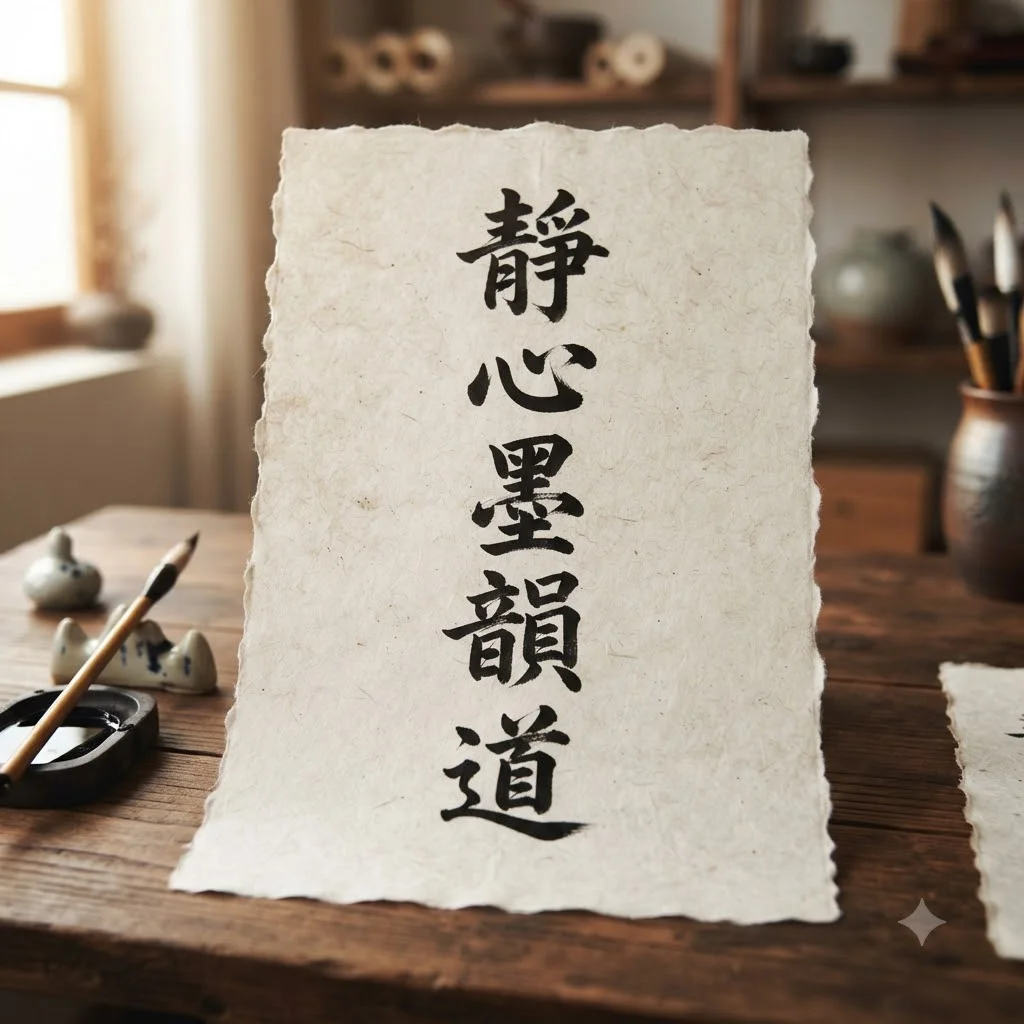 靜心墨韻道